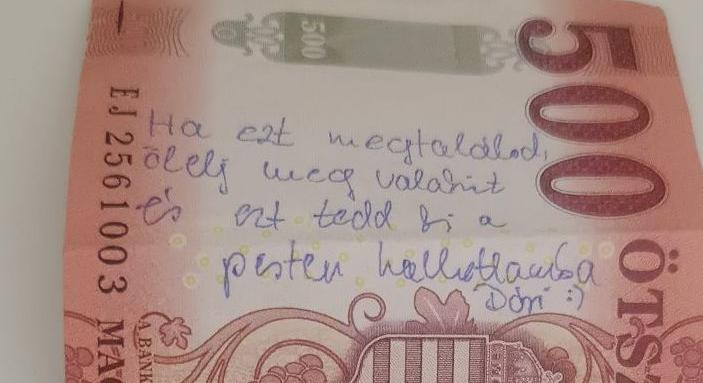 500
500
EJ 2561003
Ha ezt megtalálod,
ölelj meg valakit
és ezt tedd ki a
pesten hallottamba
Dóri :)
ÖTSZ
MAG
A BANK